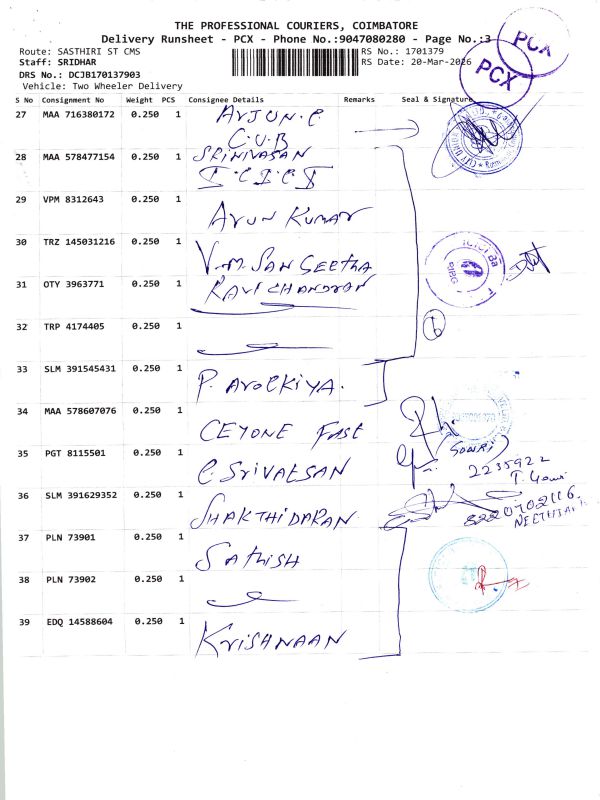 THE PROFESSIONAL COURIERS, COIMBATORE
Delivery Runsheet - PCX - Phone No.:9047080280 - Page No.:3
Route: SASTHIRI ST CMS
RS No.: 1701379
Staff: SRIDHAR
RS Date: 20-Mar-2026
DRS No.: DCJB170137903
Vehicle: Two Wheeler Delivery
PCX
PCX
S No Consignment No Weight PCS Consignee Details Remarks Seal & Signature
27 MAA 716380172 0.250 1 Arjun.C
C.U.B
28 MAA 578477154 0.250 1 SRINIVASAN
I.C.I.C.I
29 VPM 8312643 0.250 1 Arun Kumar
30 TRZ 145031216 0.250 1 V.M.SANGEEtha
31 OTY 3963771 0.250 1 RAVICHANDRAN
32 TRP 4174405 0.250 1
6
33 SLM 391545431 0.250 1 P. Arockiya.
34 MAA 578607076 0.250 1 CEYONE FAST
(Sowri)
35 PGT 8115501 0.250 1 C.SrivatSAN
2235922
T. Gowri
36 SLM 391629352 0.250 1 SHAKTHIDARAN
8220702116.
37 PLN 73901 0.250 1 SAthish
38 PLN 73902 0.250 1
39 EDQ 14588604 0.250 1 KriSHNAAN